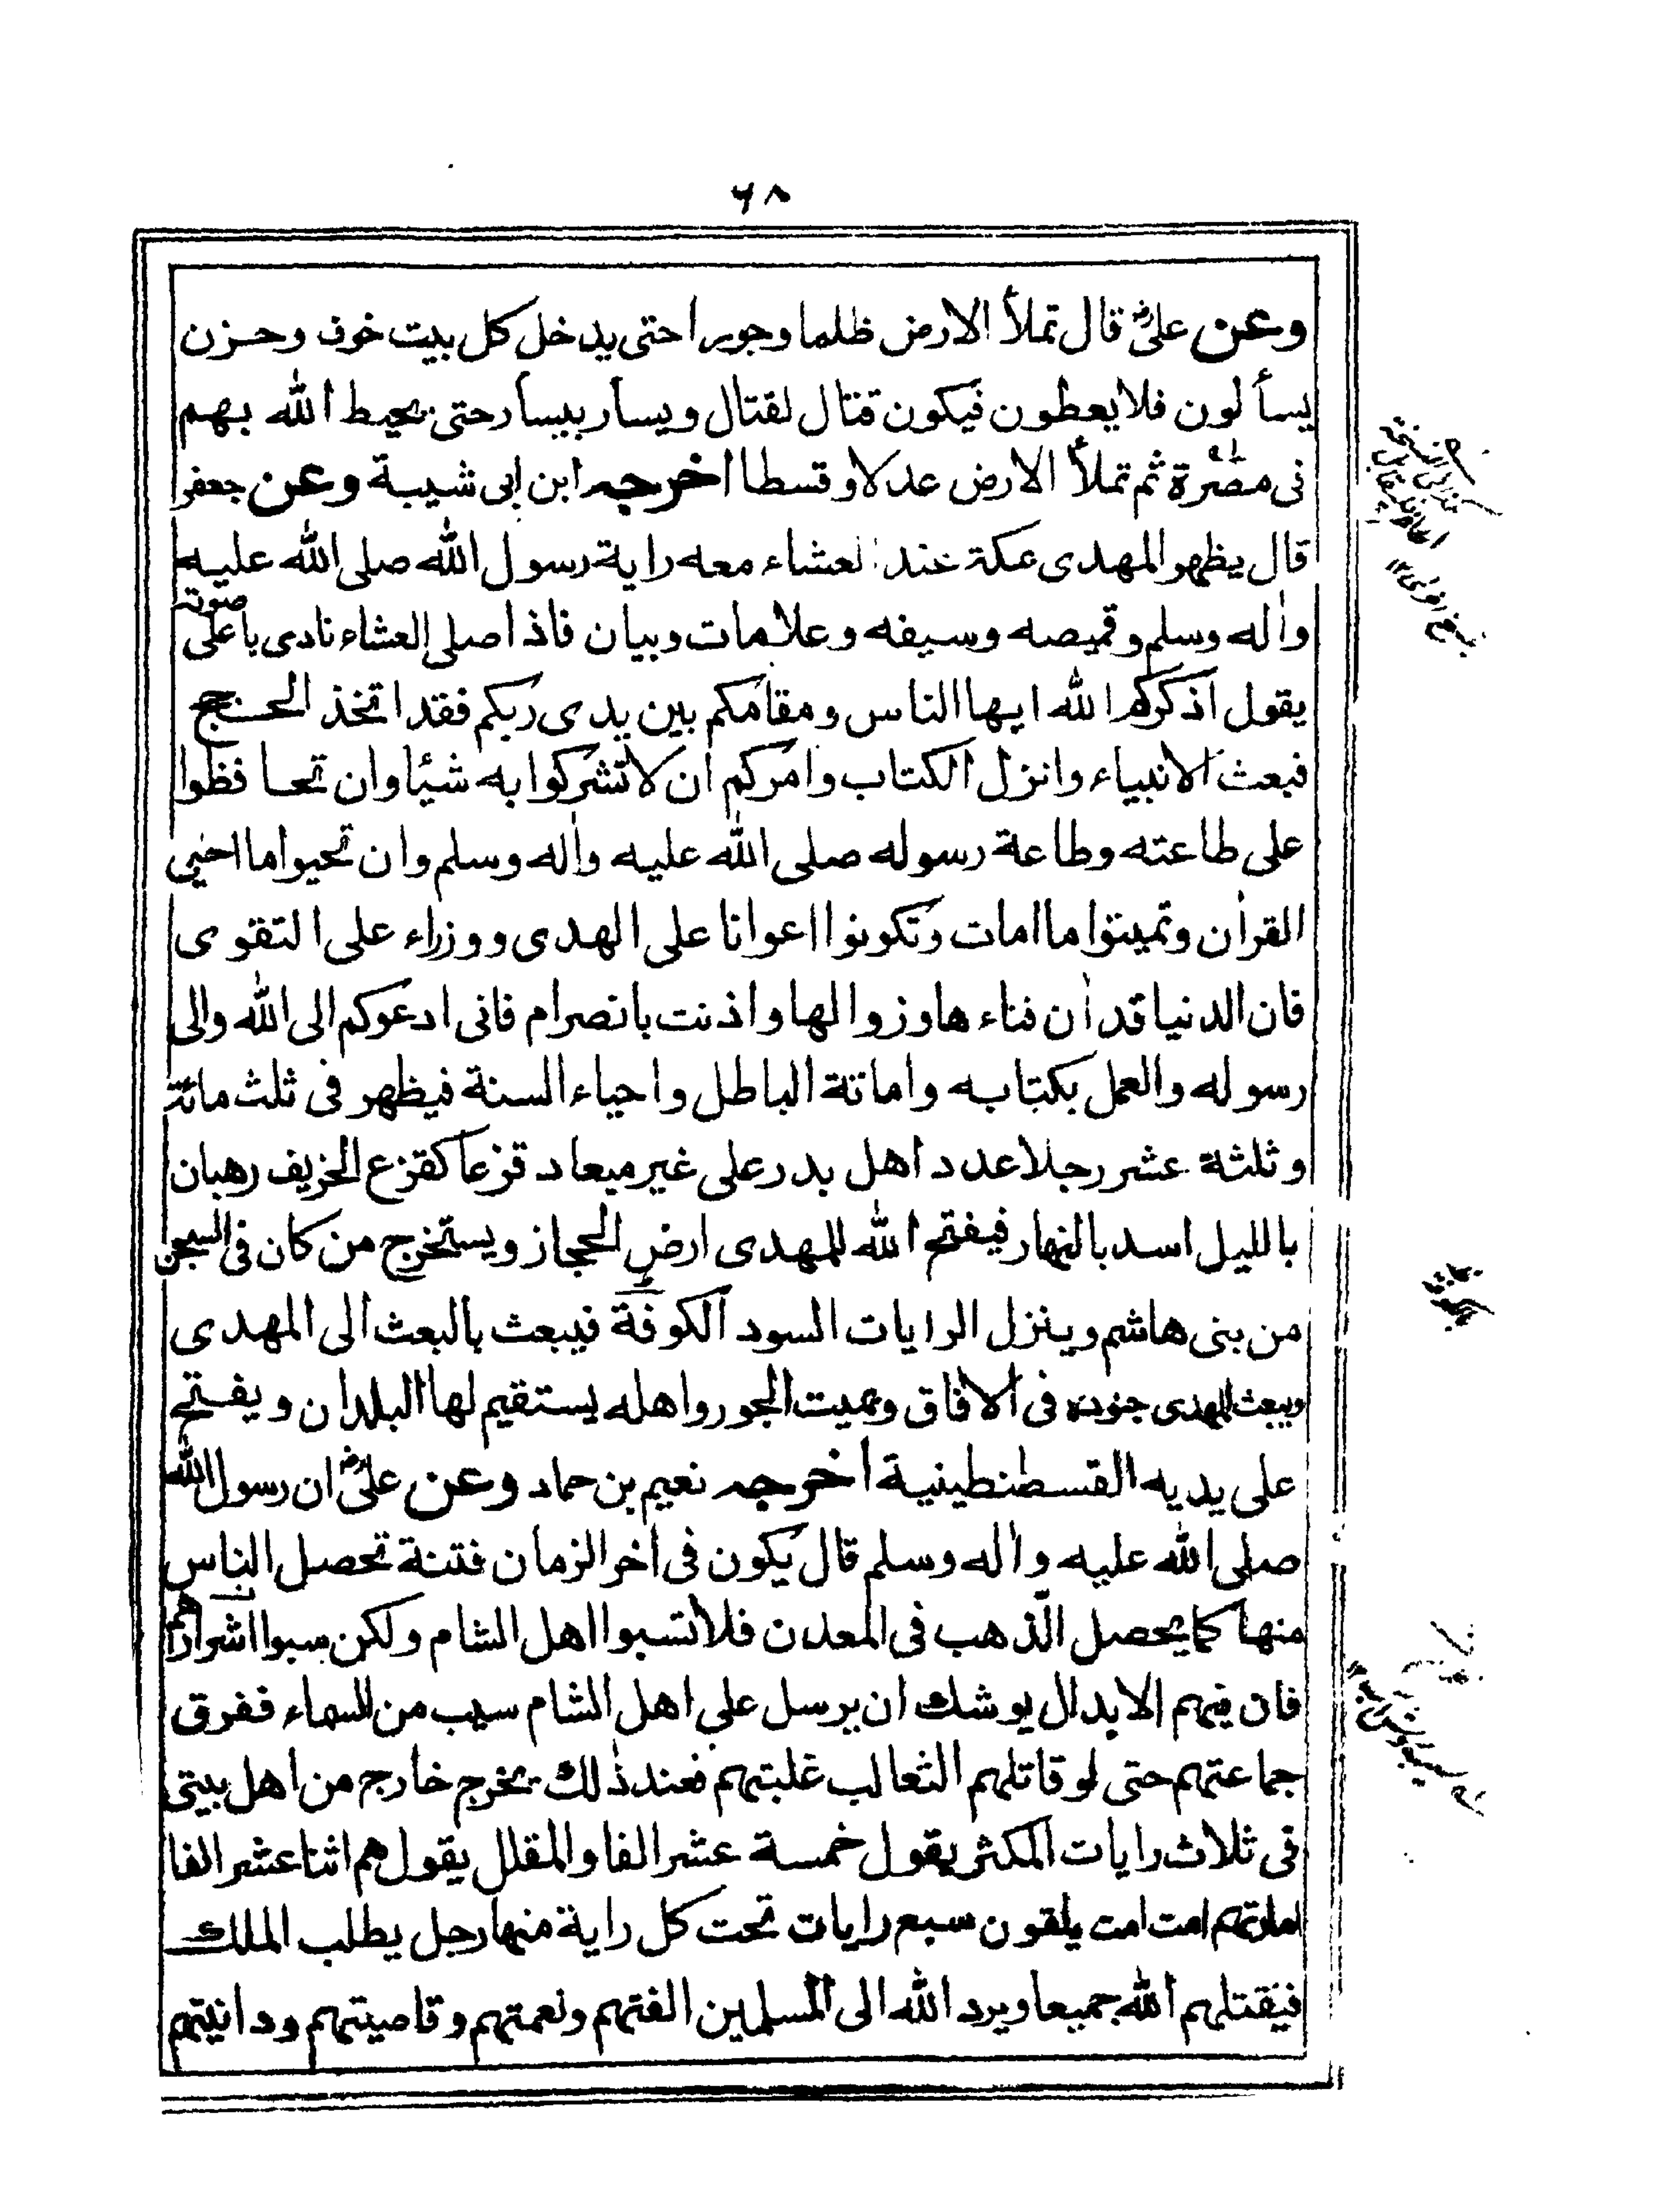 ٦٨
وعن علیؓ قال تملأ الارض ظلما وجورا حتی یدخل کل بیت خوف وحزن
یسألون فلا یعطون فیکون قتال لقتال ویسار بیسار حتی یحیط الله بهم
فی مصره ثم تملأ الارض عدلا وقسطا اخرجه ابن ابی شیبة وعن جعفر
قال یظهر المهدی بمکة عند العشاء معه رایة رسول الله صلی الله علیه
واٰله وسلم وقمیصه وسیفه وعلامات وبیان فاذا صلی العشاء نادی باعلی صوته
یقول اذکرکم الله ایها الناس ومقامکم بین یدی ربکم فقد اتخذ الحجج
فبعث الانبیاء وانزل الکتاب وامرکم ان لا تشرکوا به شیئا وان تحافظوا
علی طاعته وطاعة رسوله صلی الله علیه واٰله وسلم وان تحیوا ما احیی
القراٰن وتمیتوا ما امات وتکونوا اعوانا علی الهدی ووزراء علی التقوی
فان الدنیا قد اٰن فناءها وزوالها واذنت بانصرام فانی ادعوکم الی الله والی
رسوله والعمل بکتابه واماتة الباطل واحیاء السنة فیظهر فی ثلث مائة
وثلثة عشر رجلا عدد اهل بدر علی غیر میعاد قزعا کقزع الخریف رهبان
باللیل اسد بالنهار فیفتح الله للمهدی ارض الحجاز ویستخرج من کان فی السجن
من بنی هاشم وینزل الرایات السود الکوفة فیبعث بالبعث الی المهدی
ویبعث المهدی جنوده فی الاٰفاق ویمیت الجور واهله یستقیم لها البلدان ویفتح
علی یدیه القسطنطینیة اخرجه نعیم بن حماد وعن علیؓ ان رسول الله
صلی الله علیه واٰله وسلم قال یکون فی اٰخر الزمان فتنة تحصل الناس
منها کما یحصل الذهب فی المعدن فلا تسبوا اهل الشام ولکن سبوا اشرارهم
فان فیهم الابدال یوشك ان یرسل علی اهل الشام سیب من السماء ففرق
جماعتهم حتی لو قاتلهم الثعالب غلبتهم فعند ذٰلك یخرج خارج من اهل بیتی
فی ثلاث رایات المکثر یقول خمسة عشر الفا والمقلل یقول هم اثنا عشر الفا
امارتهم امت امت یلقون سبع رایات تحت کل رایة منها رجل یطلب الملك
فیقتلهم الله جمیعا ویرد الله الی المسلمین الفتهم ونعمتهم وقاصیتهم ودانیتهم